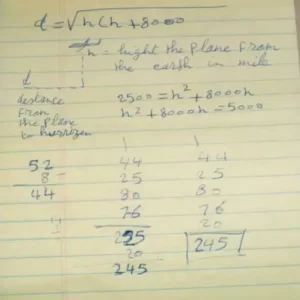 d = √h(h + 8000
h = hight the plane from
the earth in mile
d
distance
from
the plane
to horrizon
2500 = h² + 8000h
h² + 8000h = 5000
52
8
44
44
25
80
76
225
20
245
44
25
80
76
20
245